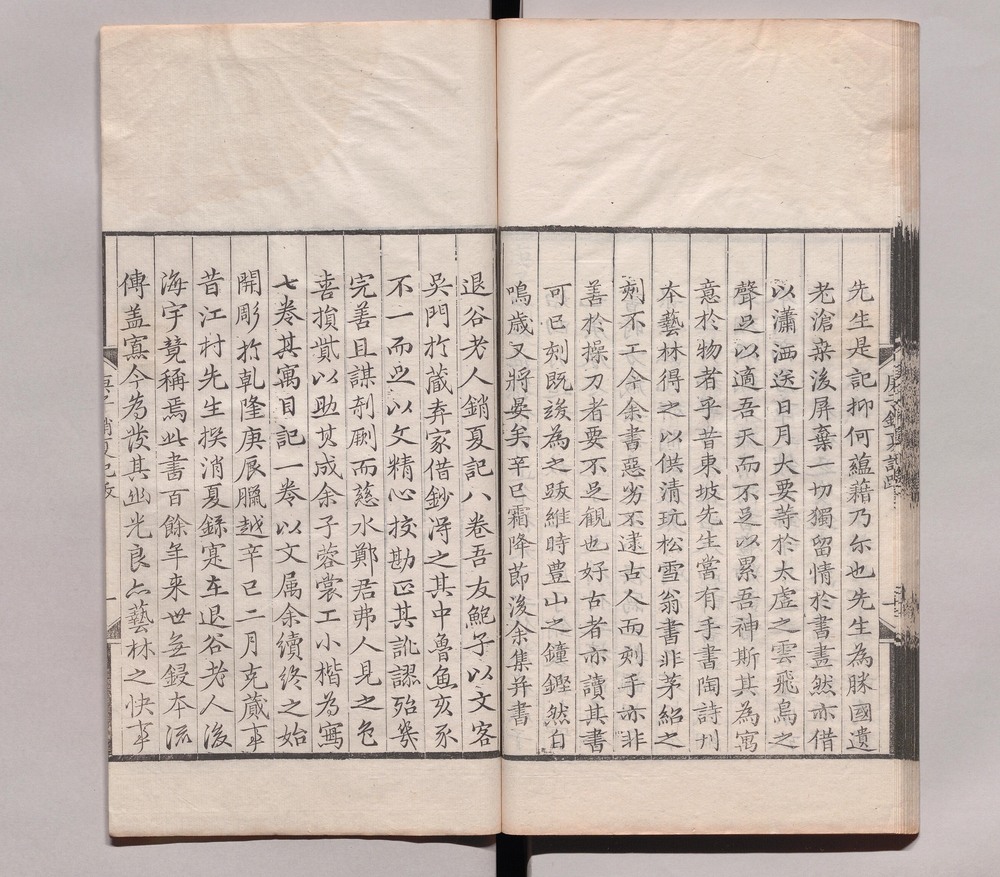 先生是記抑何蘊藉乃尓也先生為勝國遺
老滄桒後屏棄一切獨留情於書畫然亦借
以瀟洒送日月大要等於太虛之雲飛鳥之
聲足以適吾天而不足以累吾神斯其為寓
意於物者乎昔東坡先生嘗有手書陶詩刋
本藝林得之以供清玩松雪翁書非茅紹之
刻不工今余書惡劣不逮古人而刻手亦非
善於操刀者要不足觀也好古者亦讀其書
可已刻既竣為之跋維時豊山之鐘鏗然自
鳴歳又將晏矣辛巳霜降節後余集并書
退谷老人銷夏記八卷吾友鮑子以文客
吳門扵蔵弆家借鈔淂之其中魯魚亥豕
不一而足以文精心挍勘正其訛謬殆幾
完善且謀剞劂而慈水鄭君弗人見之色
喜損貲以助其成余子蓉裳工小楷為寫
七卷其寓目記一卷以文属余續終之始
開彫扵乹隆庚辰臘越辛巳二月克蕆事
昔江村先生撰消夏録寔在退谷老人後
海宇竟稱焉此書百餘年来世無鋟本流
傳盖寡今為發其幽光良亦藝林之快事
庚子銷夏記跋
一